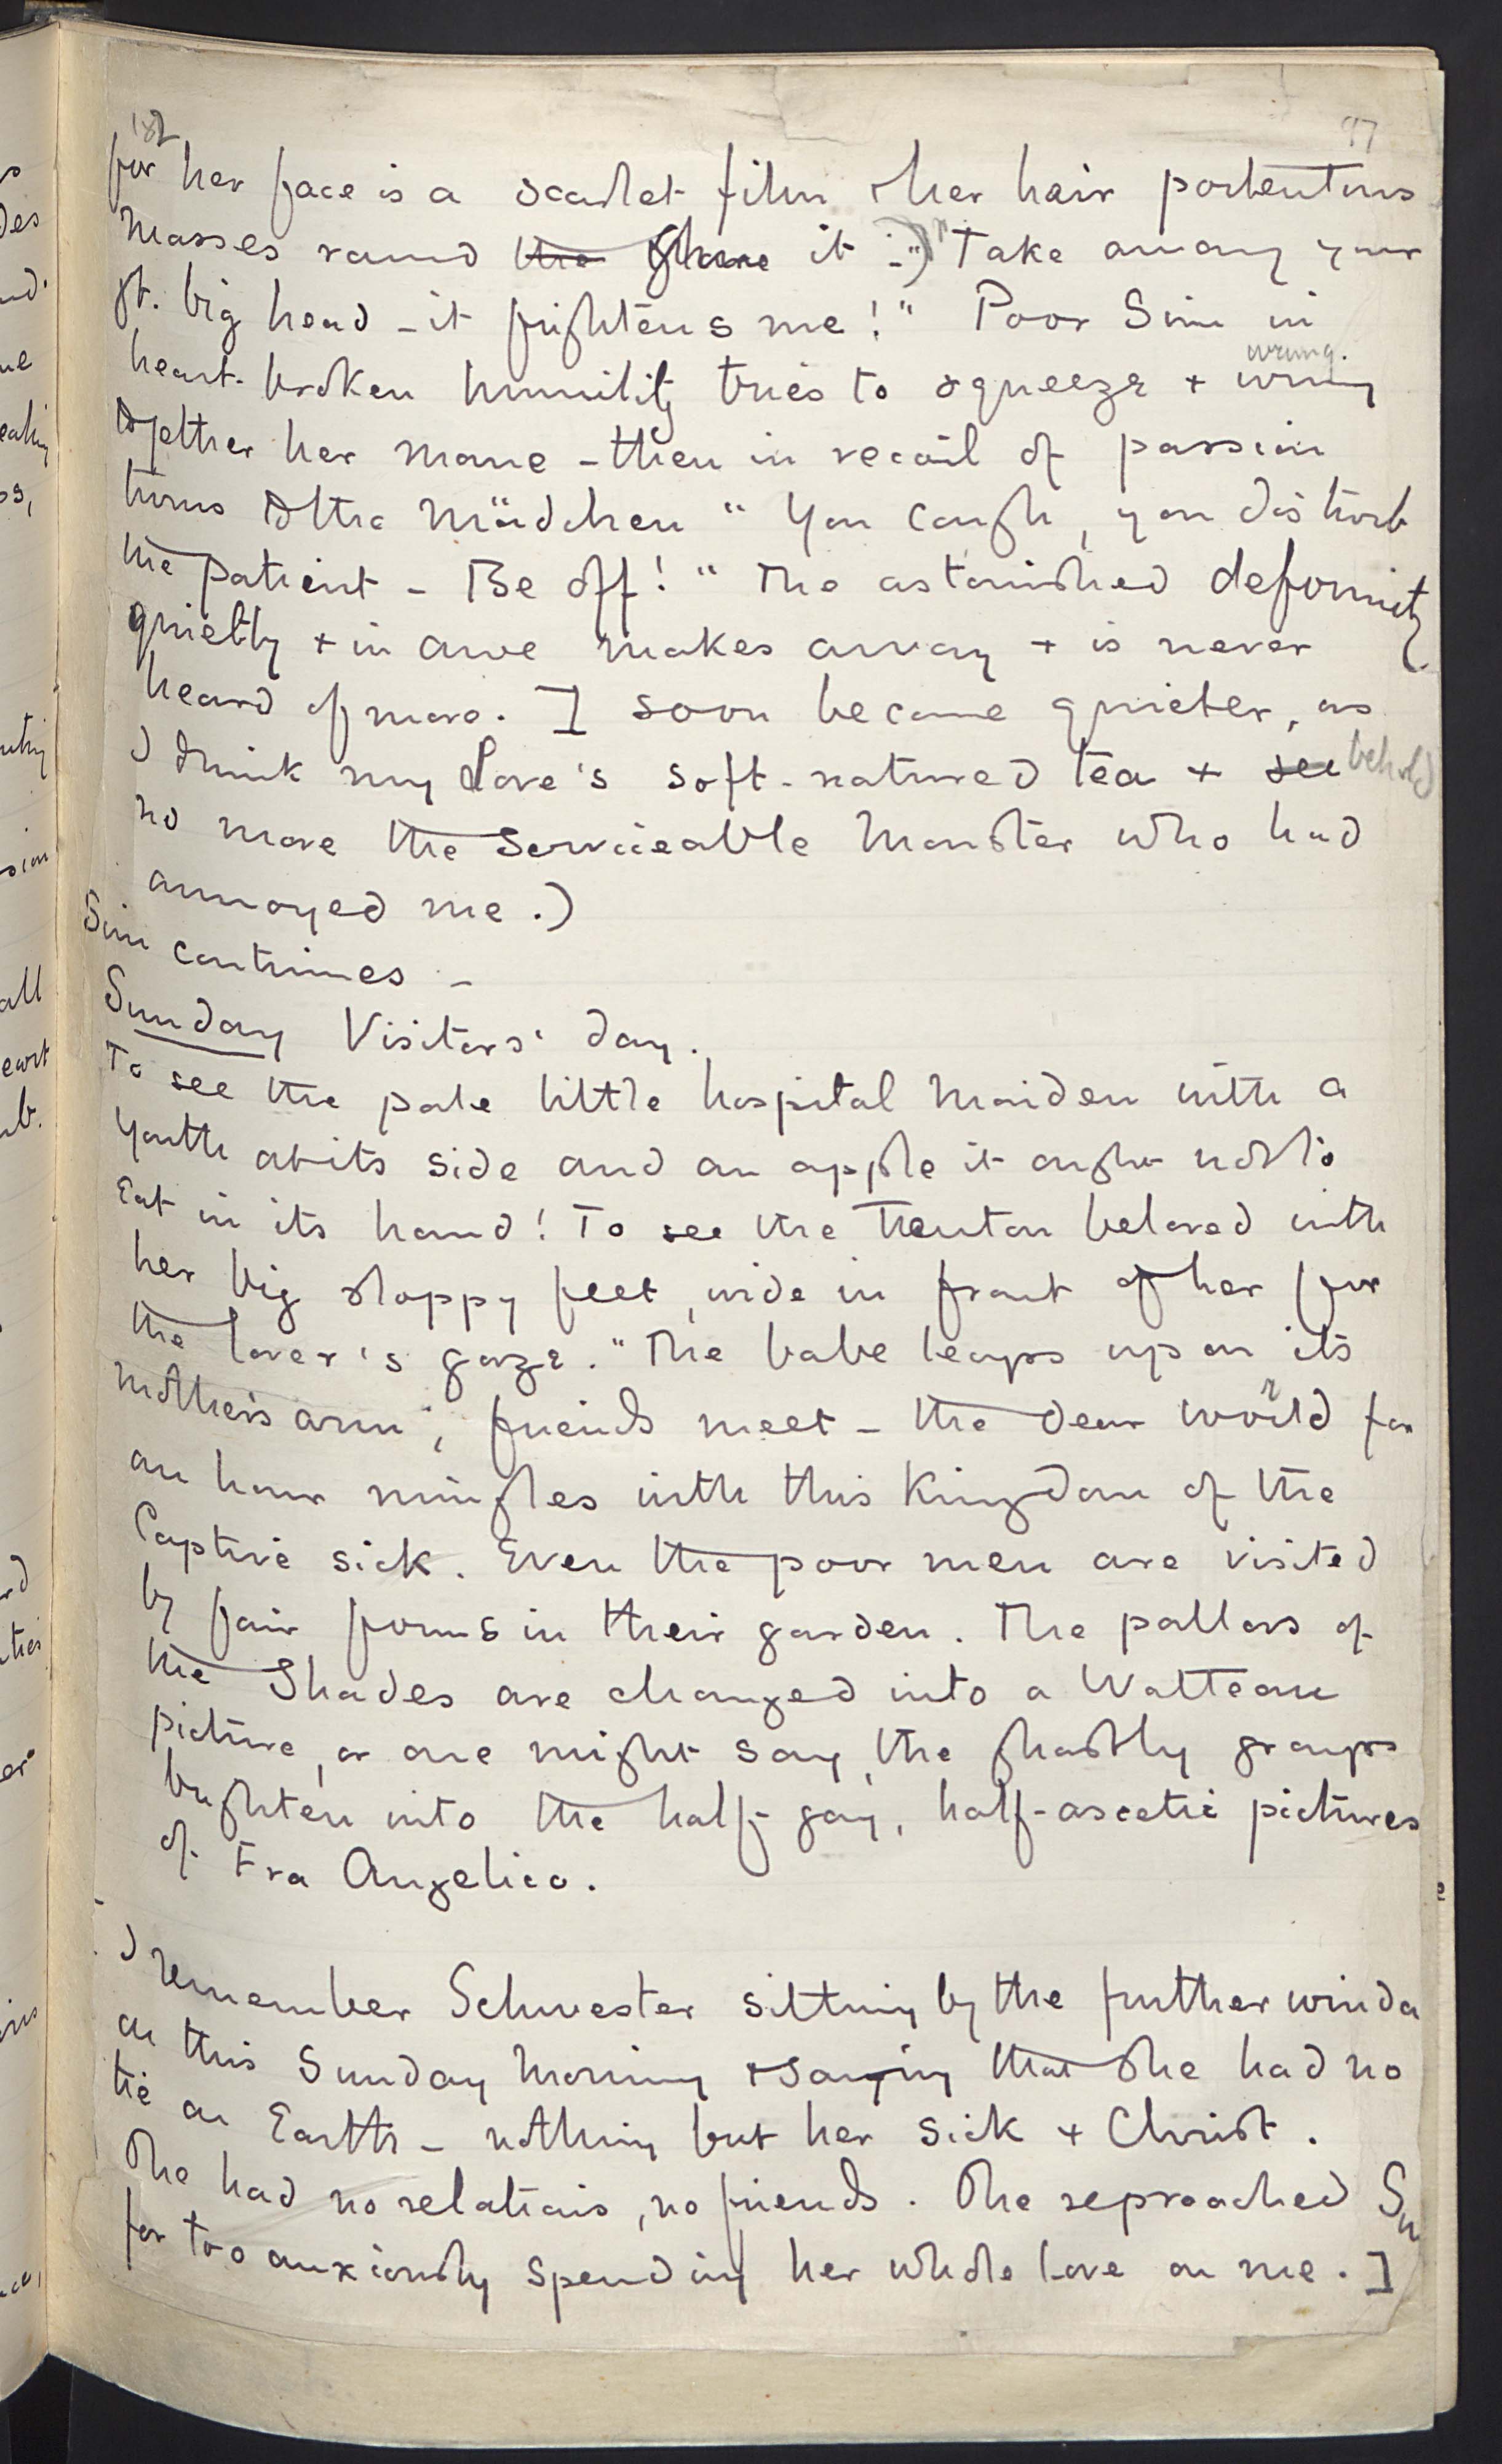 97
for her face is a scarlet film & her hair portentous
masses round the flame it :-) "Take away your
gt. big head - it frightens me!" Poor Sim in
heart-broken humility tries to squeeze + wring
wrung.
together her mane - then in recoil of passion
turns to the Mädchen "You cough, you disturb
the patient - Be off!" The astonished deformity
quietly + in awe makes away + is never
heard of more. I soon became quieter, as
I drink my Love's soft-natured tea + see behold
no more the serviceable Monster who had
annoyed me.)
Sim continues -
Sunday Visitors' day.
To see the pale little hospital maiden with a
Youth at its side and an apple it ought not to
Eat in its hand! To see the Teuton beloved with
her big sloppy feet, wide in front of her for
the lover's gaze. "The babe leaps up on its
mother's arm", friends meet - the dear world for
an hour mingles with this Kingdom of the
Captive sick. Even the poor men are visited
by fair forms in their garden. The pallors of
the Shades are changed into a Watteau
picture, or one might say, the ghastly groups
brighten into the half-gay, half-ascetic pictures
of Fra Angelico.
I remember Schwester sitting by the further windo
on this Sunday morning + saying that she had no
tie on Earth - nothing but her sick + Christ.
She had no relations, no friends. She reproached Sim
for too anxiously spending her whole love on me.]